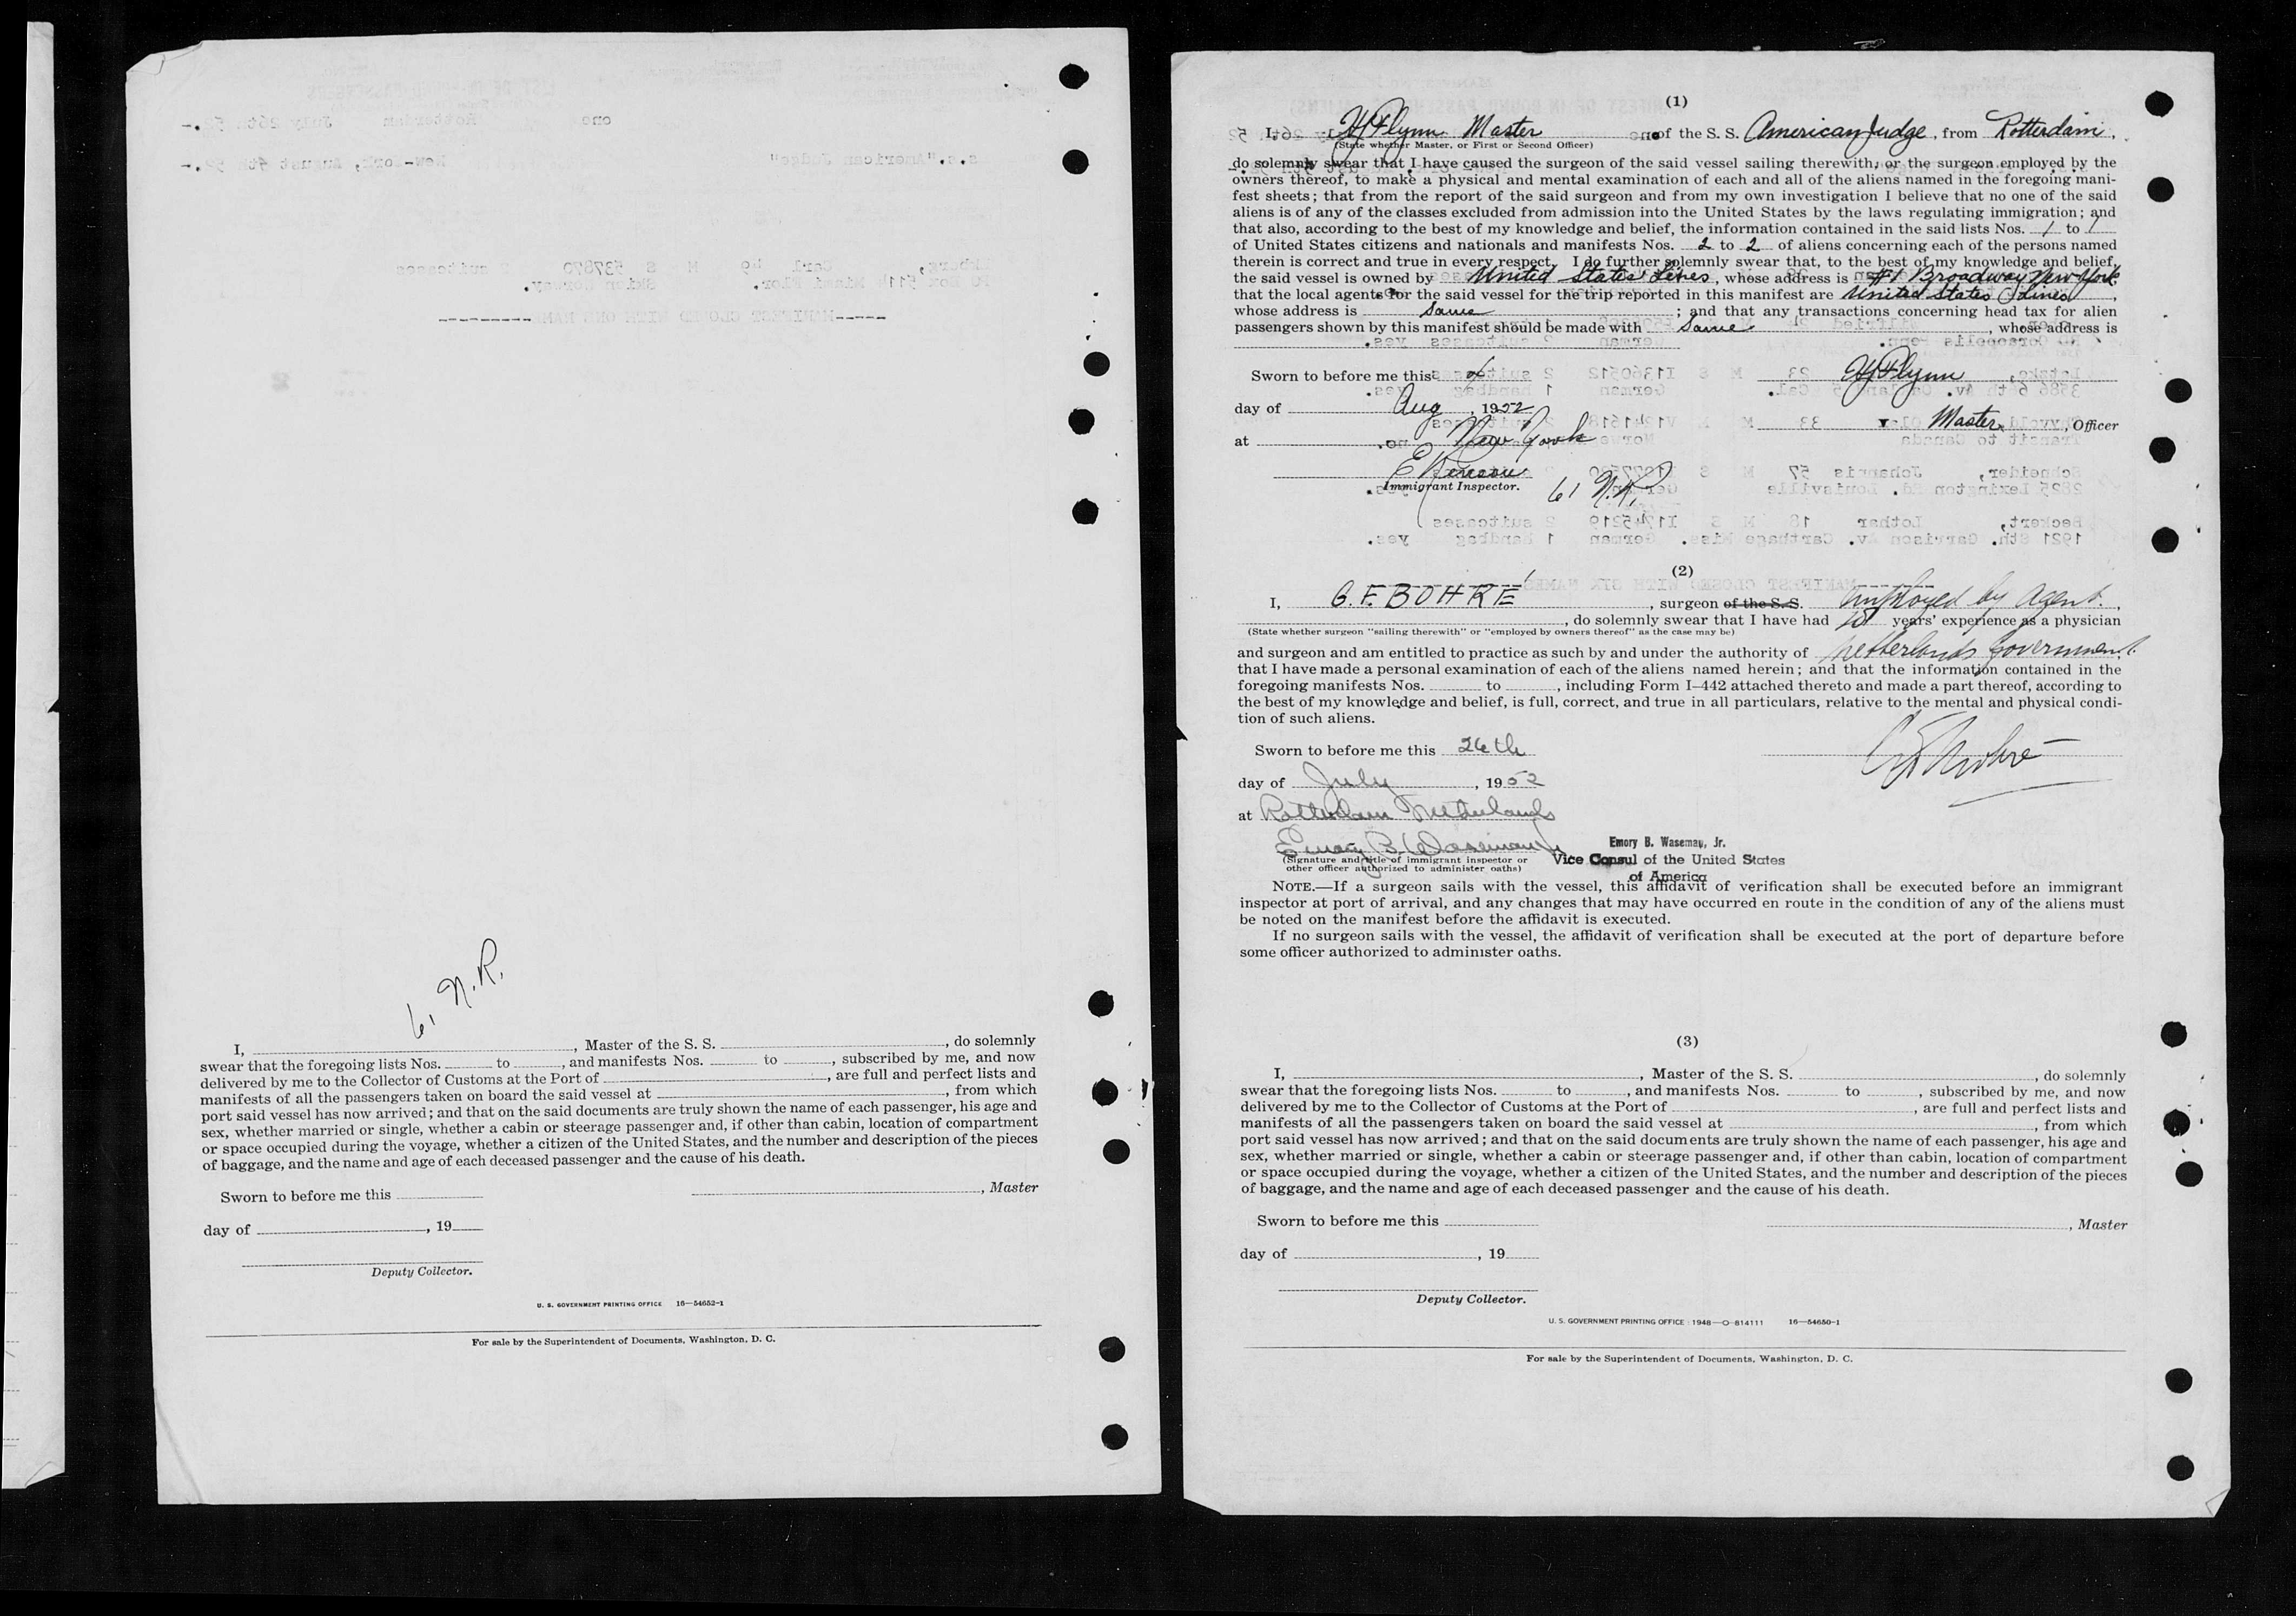 6, N.R.
I, , Master of the S. S. , do solemnly
swear that the foregoing lists Nos. to , and manifests Nos. to , subscribed by me, and now
delivered by me to the Collector of Customs at the Port of , are full and perfect lists and
manifests of all the passengers taken on board the said vessel at , from which
port said vessel has now arrived; and that on the said documents are truly shown the name of each passenger, his age and
sex, whether married or single, whether a cabin or steerage passenger and, if other than cabin, location of compartment
or space occupied during the voyage, whether a citizen of the United States, and the number and description of the pieces
of baggage, and the name and age of each deceased passenger and the cause of his death.
Sworn to before me this
, Master
day of , 19
Deputy Collector.
U. S. GOVERNMENT PRINTING OFFICE 16—54652-1
For sale by the Superintendent of Documents, Washington, D. C.
(1)
I, Flynn Master of the S. S. American Judge, from Rotterdam,
(State whether Master, or First or Second Officer)
do solemnly swear that I have caused the surgeon of the said vessel sailing therewith, or the surgeon employed by the
owners thereof, to make a physical and mental examination of each and all of the aliens named in the foregoing mani-
fest sheets; that from the report of the said surgeon and from my own investigation I believe that no one of the said
aliens is of any of the classes excluded from admission into the United States by the laws regulating immigration; and
that also, according to the best of my knowledge and belief, the information contained in the said lists Nos. 1 to 1
of United States citizens and nationals and manifests Nos. 2 to 2 of aliens concerning each of the persons named
therein is correct and true in every respect. I do further solemnly swear that, to the best of my knowledge and belief,
the said vessel is owned by United States Lines, whose address is #1 Broadway New York
that the local agents for the said vessel for the trip reported in this manifest are United States Lines,
whose address is Same; and that any transactions concerning head tax for alien
passengers shown by this manifest should be made with Same, whose address is
Sworn to before me this
Flynn
day of Aug, 1952
Master, Officer
at New York
Immigrant Inspector.
61 N.R.
(2)
I, G. F. BOHRÉ, surgeon of the S. S. employed by Agent.,
, do solemnly swear that I have had years' experience as a physician
(State whether surgeon "sailing therewith" or "employed by owners thereof" as the case may be)
and surgeon and am entitled to practice as such by and under the authority of Netherlands Government.
that I have made a personal examination of each of the aliens named herein; and that the information contained in the
foregoing manifests Nos. to , including Form I–442 attached thereto and made a part thereof, according to
the best of my knowledge and belief, is full, correct, and true in all particulars, relative to the mental and physical condi-
tion of such aliens.
Sworn to before me this 26th
day of July, 1952
at Rotterdam Netherlands
Emory B. Waseman Jr
Emory B. Waseman, Jr.
(Signature and title of immigrant inspector or
Vice Consul of the United States
other officer authorized to administer oaths)
of America
NOTE.—If a surgeon sails with the vessel, this affidavit of verification shall be executed before an immigrant
inspector at port of arrival, and any changes that may have occurred en route in the condition of any of the aliens must
be noted on the manifest before the affidavit is executed.
If no surgeon sails with the vessel, the affidavit of verification shall be executed at the port of departure before
some officer authorized to administer oaths.
(3)
I, , Master of the S. S. , do solemnly
swear that the foregoing lists Nos. to , and manifests Nos. to , subscribed by me, and now
delivered by me to the Collector of Customs at the Port of , are full and perfect lists and
manifests of all the passengers taken on board the said vessel at , from which
port said vessel has now arrived; and that on the said documents are truly shown the name of each passenger, his age and
sex, whether married or single, whether a cabin or steerage passenger and, if other than cabin, location of compartment
or space occupied during the voyage, whether a citizen of the United States, and the number and description of the pieces
of baggage, and the name and age of each deceased passenger and the cause of his death.
Sworn to before me this
, Master
day of , 19
Deputy Collector.
U. S. GOVERNMENT PRINTING OFFICE : 1948—O-814111 16—54650-1
For sale by the Superintendent of Documents, Washington, D. C.